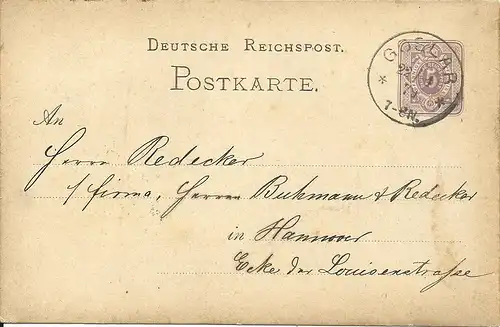 DEUTSCHE REICHSPOST.
POSTKARTE.
GOSLAR
7-8N.
5
An
Herrn Redecker
Firma, Herren Buhmann & Redecker
in Hannover
Ecke der Louisenstrasse